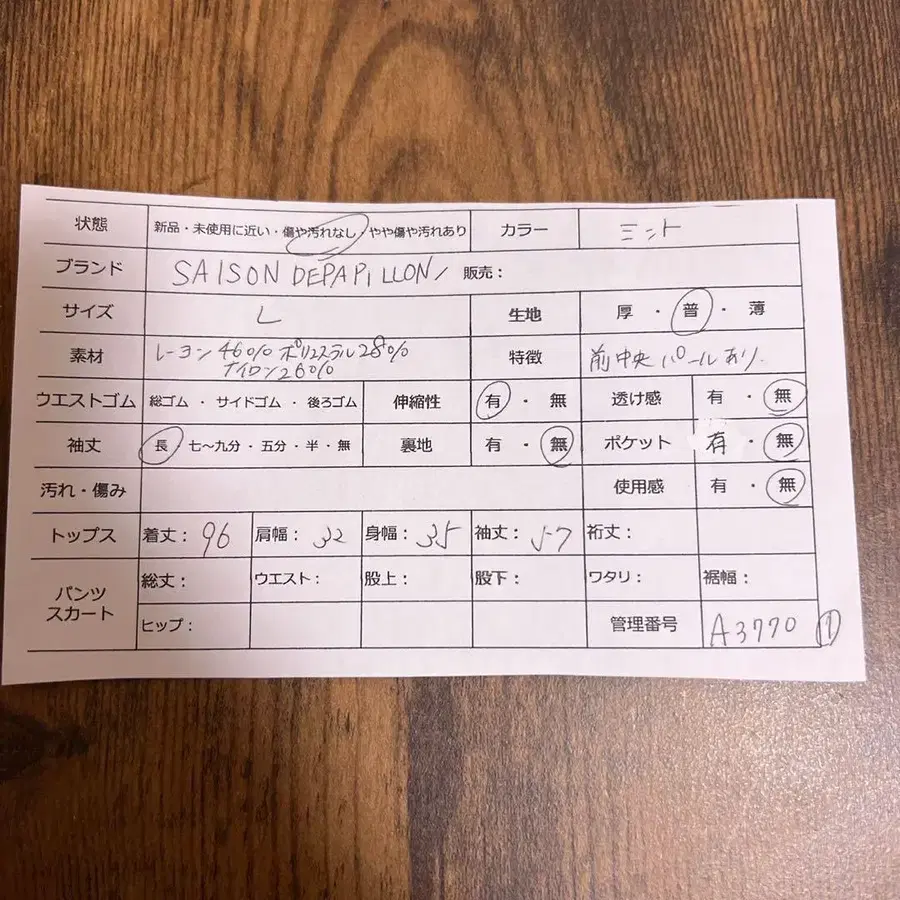 状態 新品・未使用に近い・傷や汚れなし・やや傷や汚れあり カラー ミント
ブランド SAISON DEPAPILLON / 販売：
サイズ L 生地 厚・普・薄
素材 レーヨン46% ポリエステル28% 特徴 前中央パールあり.
ナイロン26%
ウエストゴム 総ゴム・サイドゴム・後ろゴム 伸縮性 有・無 透け感 有・無
袖丈 長・七〜九分・五分・半・無 裏地 有・無 ポケット 有・無
汚れ・傷み 使用感 有・無
トップス 着丈：96 肩幅：32 身幅：35 袖丈：57 裄丈：
パンツ スカート 総丈： ウエスト： 股上： 股下： ワタリ： 裾幅：
ヒップ： 管理番号 A3770 ①